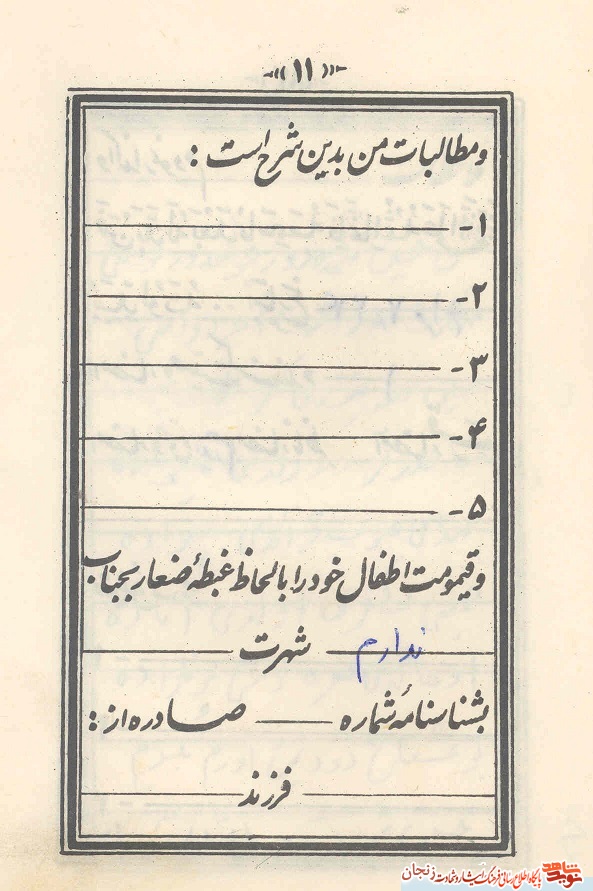 «۱۱»
و مطالبات من بدین شرح است :
۱-
۲-
۳-
۴-
۵-
و قیمومت اطفال خود را با لحاظ غبطهٔ صغار بجناب
ندارم شهرت
بشناسنامهٔ شماره صادره از :
فرزند
نوید شاهد پایگاه اطلاع رسانی فرهنگ ایثار و شهادت زنجان